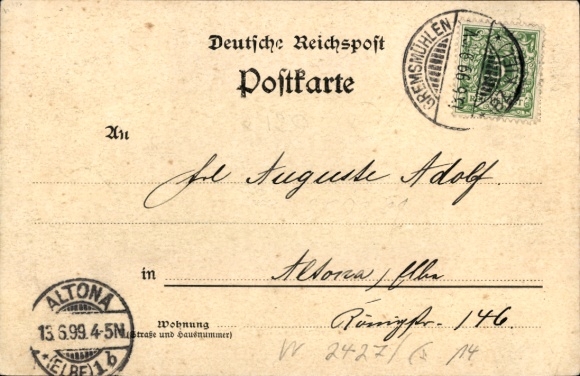 Deutsche Reichspost
Postkarte
GREMSMÜHLEN
13.6.99.
An
Frl Auguste Adolf.
in
Altona / Elbe
Wohnung
(Straße und Hausnummer)
Königstr. 146.
ALTONA
13.6.99.4-5N.
*(ELBE)1b
W 2427/
14